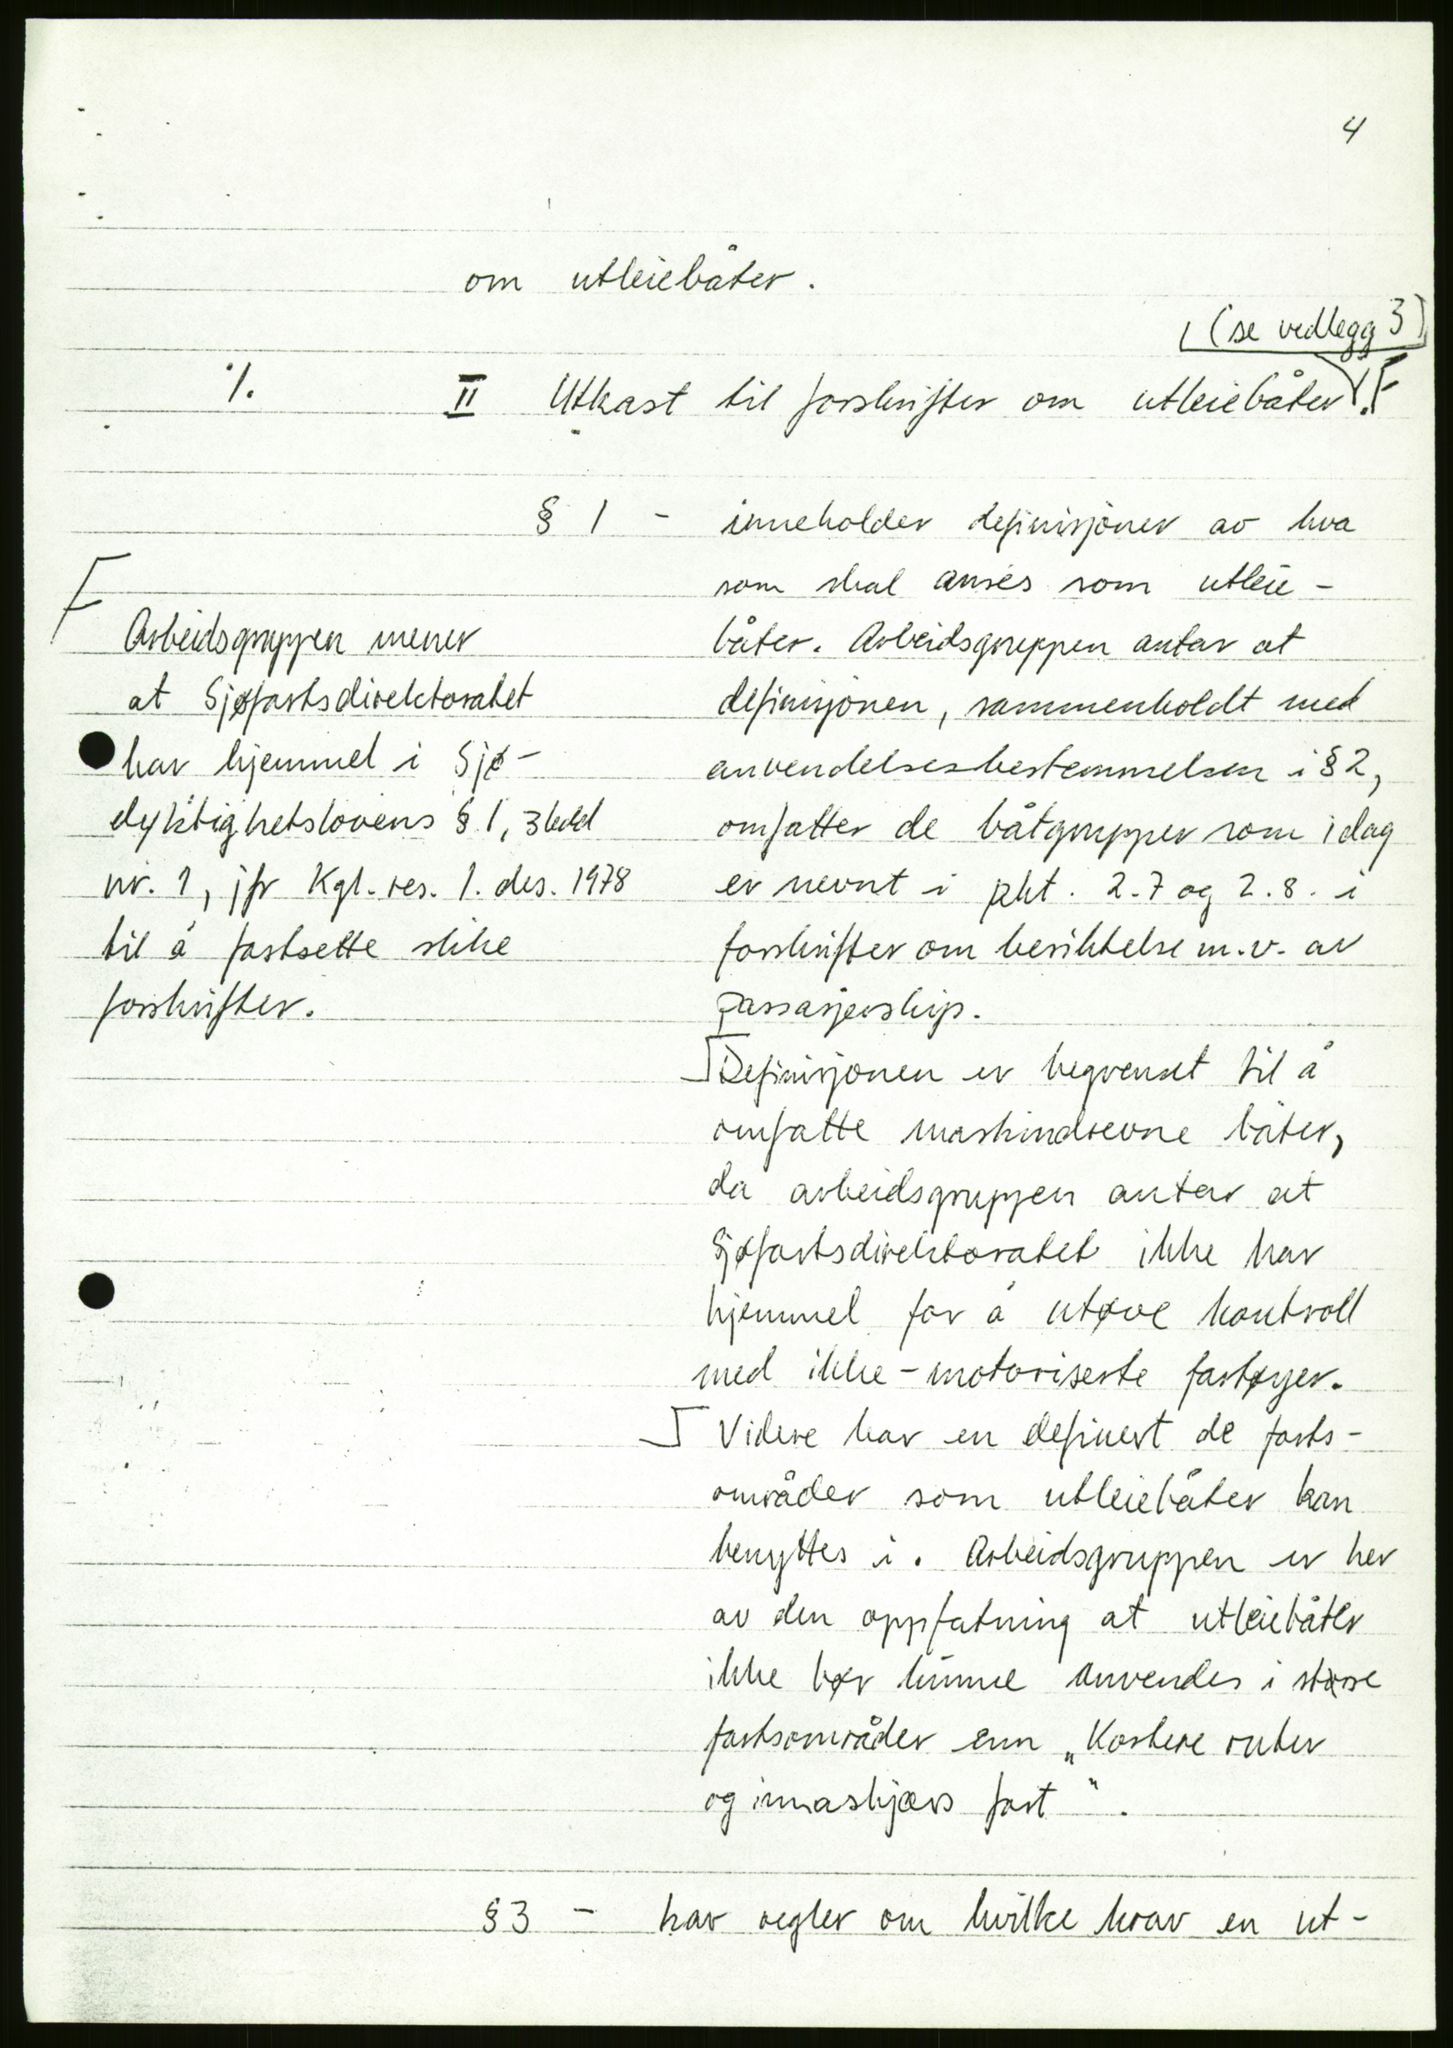 4
om utleiebåter.
(se vedlegg 3)
·/.
II Utkast til forskrifter om utleiebåter.
§ 1 - inneholder definisjoner av hva
som skal anses som utleie-
båter. Arbeidsgruppen antar at
definisjonen, sammenholdt med
anvendelsesbestemmelsen i § 2,
omfatter de båtgrupper som idag
er nevnt i pkt. 2.7 og 2.8. i
forskrifter om besiktelse m.v. av
passasjerskip.
Definisjonen er begrenset til å
omfatte maskindrevne båter,
da arbeidsgruppen antar at
Sjøfartsdirektoratet ikke har
hjemmel for å utøve kontroll
med ikke-motoriserte fartøyer.
Videre har en definert de farts-
områder som utleiebåter kan
benyttes i. Arbeidsgruppen er her
av den oppfatning at utleiebåter
ikke bør kunne anvendes i større
fartsområder enn „Kortere ruter
og innaskjærs fart".
§ 3 - har regler om hvilke krav en ut-
Arbeidsgruppen mener
at Sjøfartsdirektoratet
har hjemmel i Sjø-
dyktighetslovens § 1, 3 ledd
nr. 1, jfr Kgl. res. 1. des. 1978
til å fastsette slike
forskrifter.